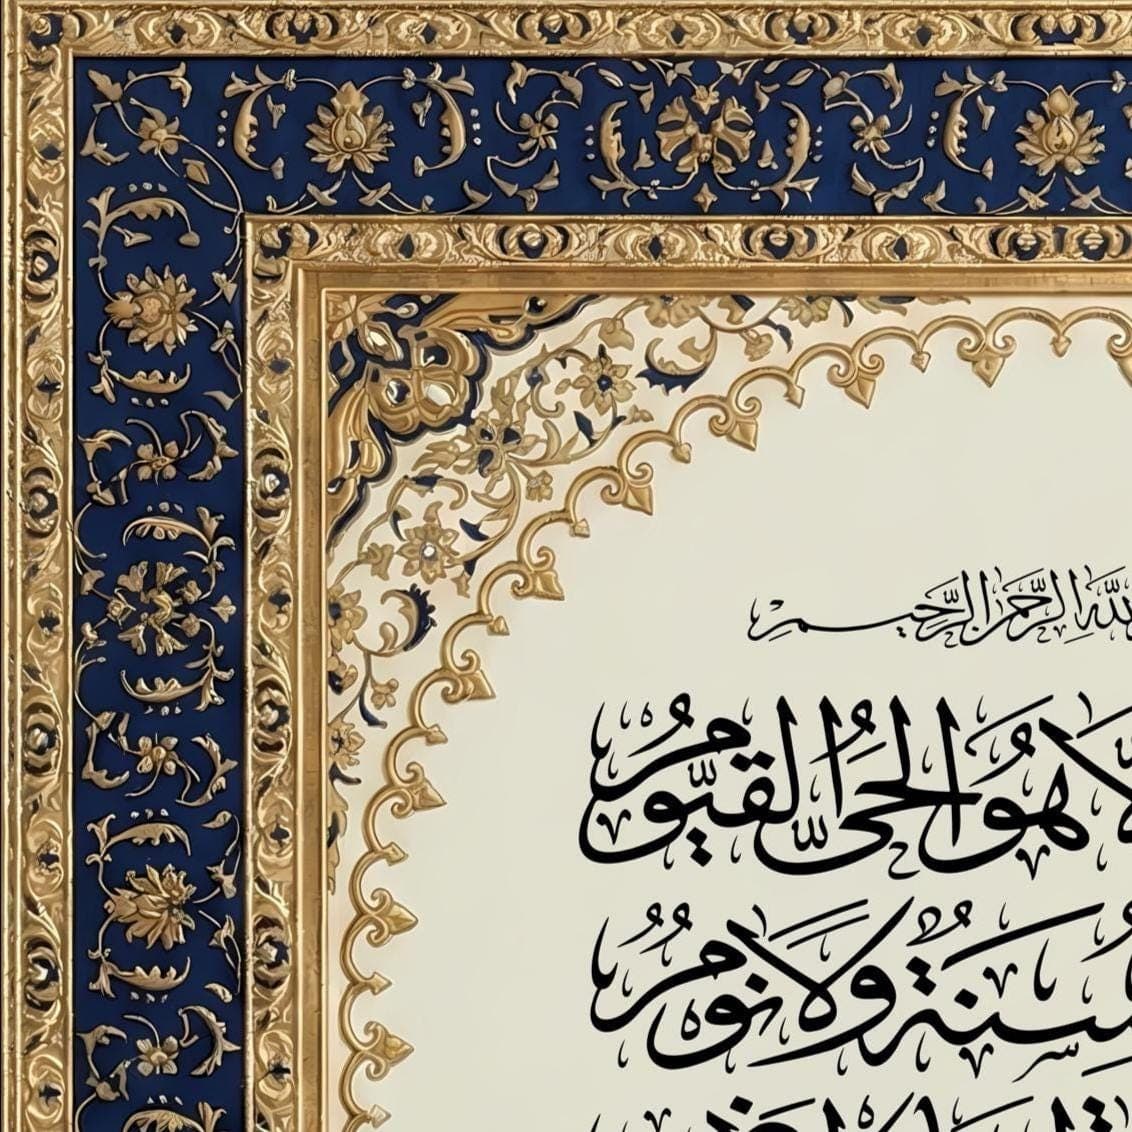 ٱللَّهِ الرَّحْمَٰنِ الرَّحِيمِ
هُوَ الْحَىُّ الْقَيُّومُ
سِنَةٌ وَلَا نَوْمٌ